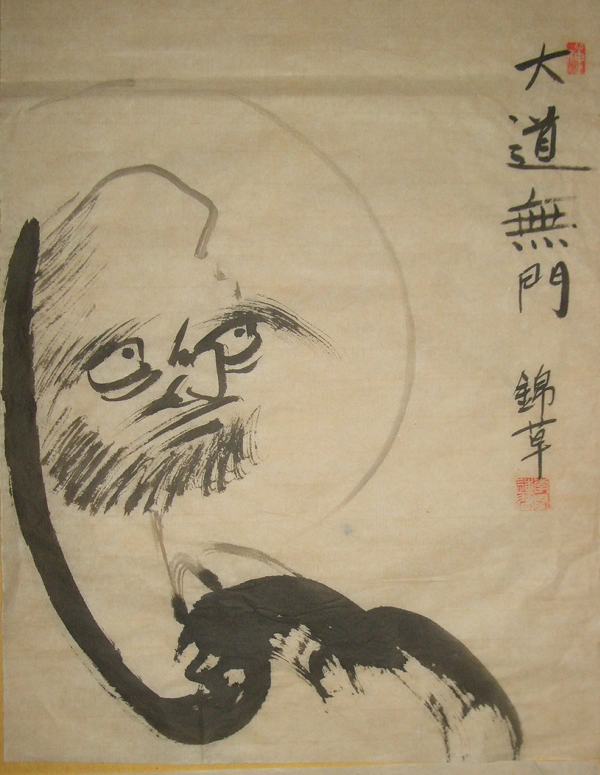 大道無門
錦草